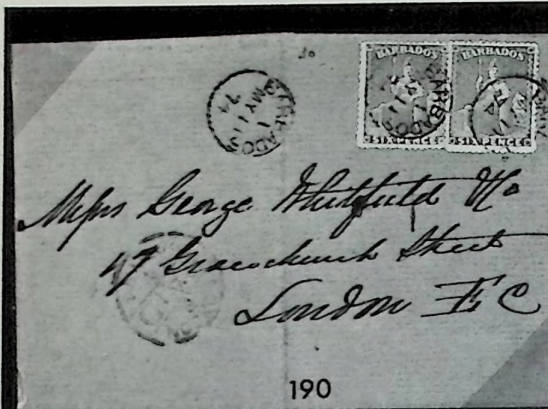 BARBADOS BARBADOS
SIX PENCE SIX PENCE
BARBADOS
MY 11
74
Messrs George Whitfield & Co
49 Gracechurch Street
London E C
190